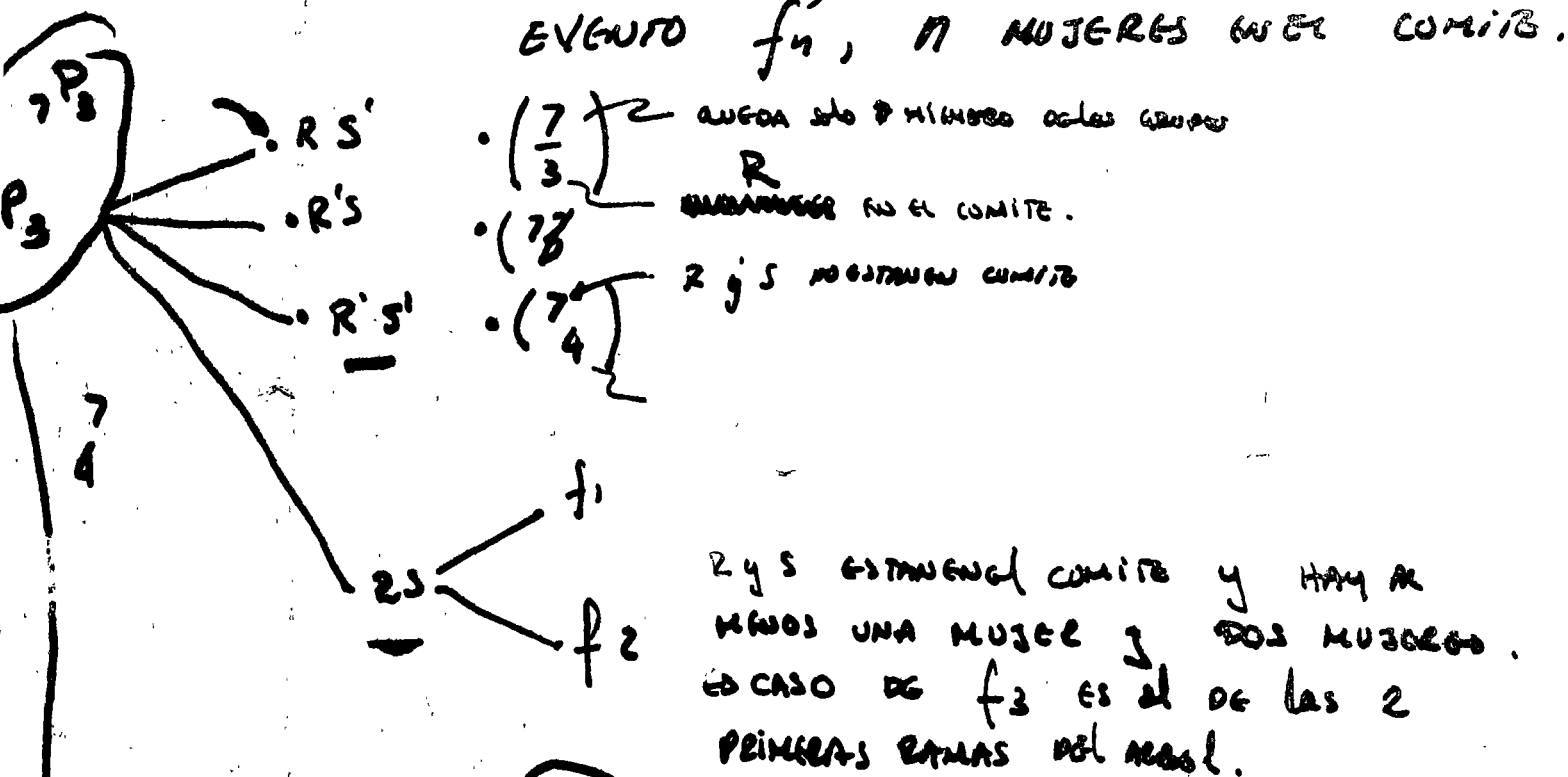 EVENTO fn, n MUJERES EN EL COMITE.
7P3
P3
. RS' . (7 3) QUEDA solo MIEMBRO DE LOS GRUPOS
R
EN EL COMITE.
. R'S . (7
. R'S' . (7 4) R y S NO ESTAN EN COMITE
7
4
f1
RS
f2
R y S ESTAN EN El COMITE y HAY AL
MENOS UNA MUJER y DOS MUJERES.
CASO DE f3 ES el DE las 2
PRIMERAS RAMAS DEL ARBOL.